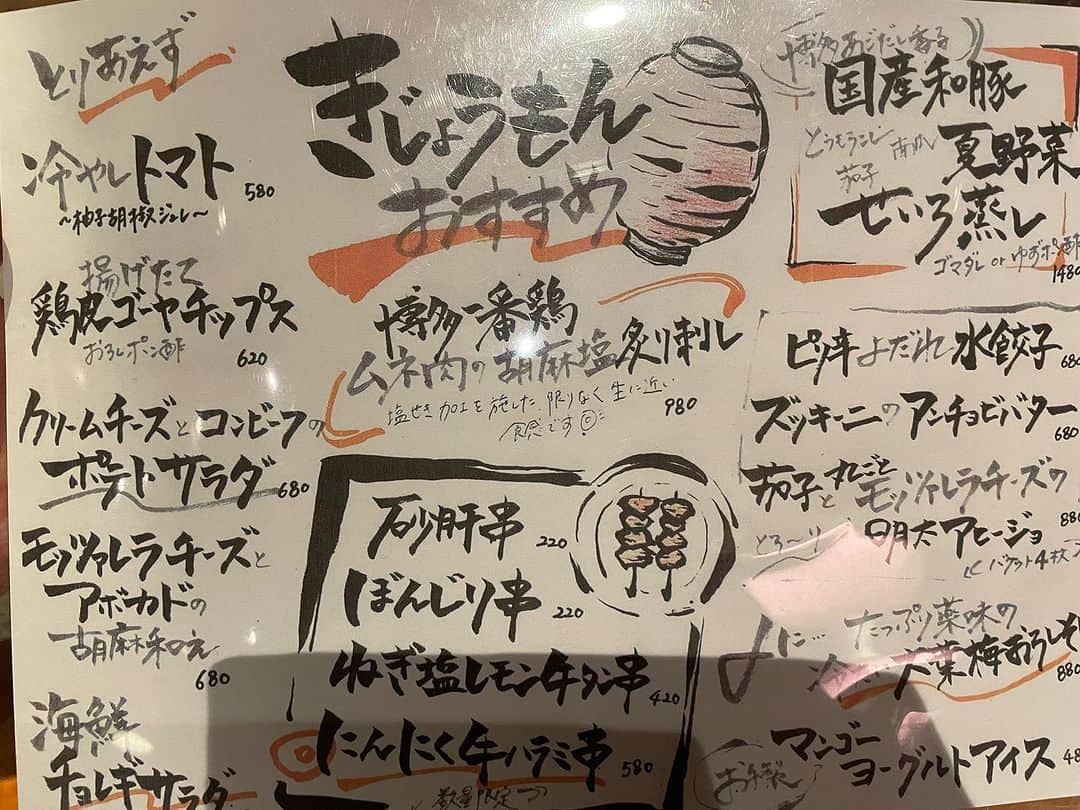 とりあえず
冷やしトマト 580
~柚子胡椒ジュレ~
揚げたて
鶏皮ゴーヤチップス
おろしポン酢 620
クリームチーズとコンビーフの
ポテトサラダ 680
モッツァレラチーズと
アボカドの
胡麻和え
680
海鮮
チョレギサラダ
きじょうもん
おすすめ
博多一番鶏
ムネ肉の胡麻塩炙り刺し
塩せき加工を施した、限りなく生に近い
食感です
980
砂肝串 220
ぼんじり串 220
ねぎ塩レモン牛タン串 420
にんにく牛ハラミ串 580
数量限定
博多あごだし香る
国産和豚
とうもろこし 南瓜
茄子
夏野菜
せいろ蒸し
ゴマダレ or ゆずポン酢
1480
ピリ辛よだれ水餃子 680
ズッキーニのアンチョビバター
680
茄子と丸ごとモッツァレラチーズの
880
とろ〜り 明太アヒージョ
バゲット4枚
たっぷり薬味の
大葉梅おろしそ
880
お手製
マンゴー
ヨーグルトアイス 48